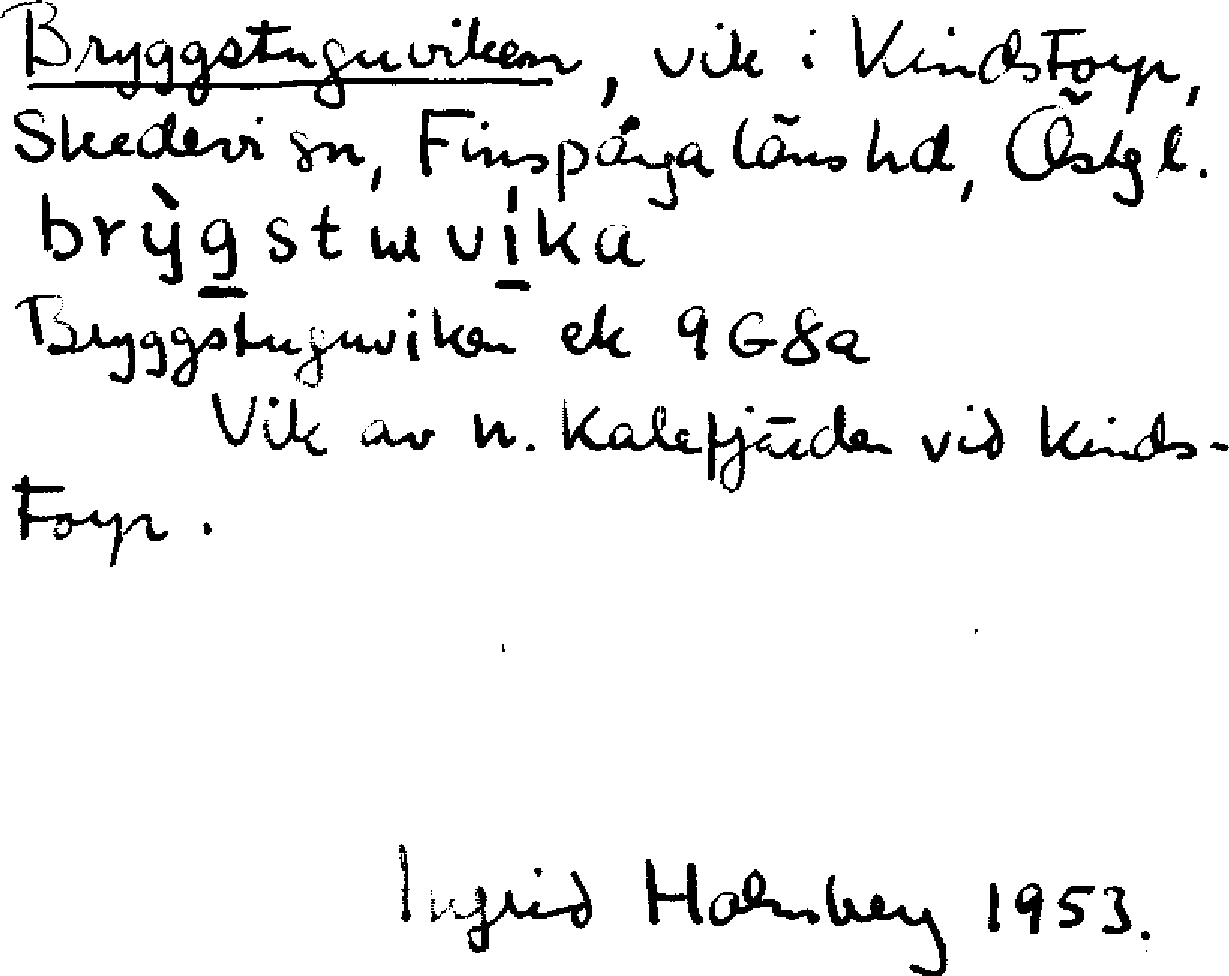 Bryggstuguviken, vik i Kindstorp,
Skedevi sn, Finspånga läns hd, Östgl.
brỳg̲stɯví̲ka
Bryggstuguviken ek 9G8a
Vik av n. Kalefjärden vid Kinds-
torp.
Ingrid Holmberg 1953.